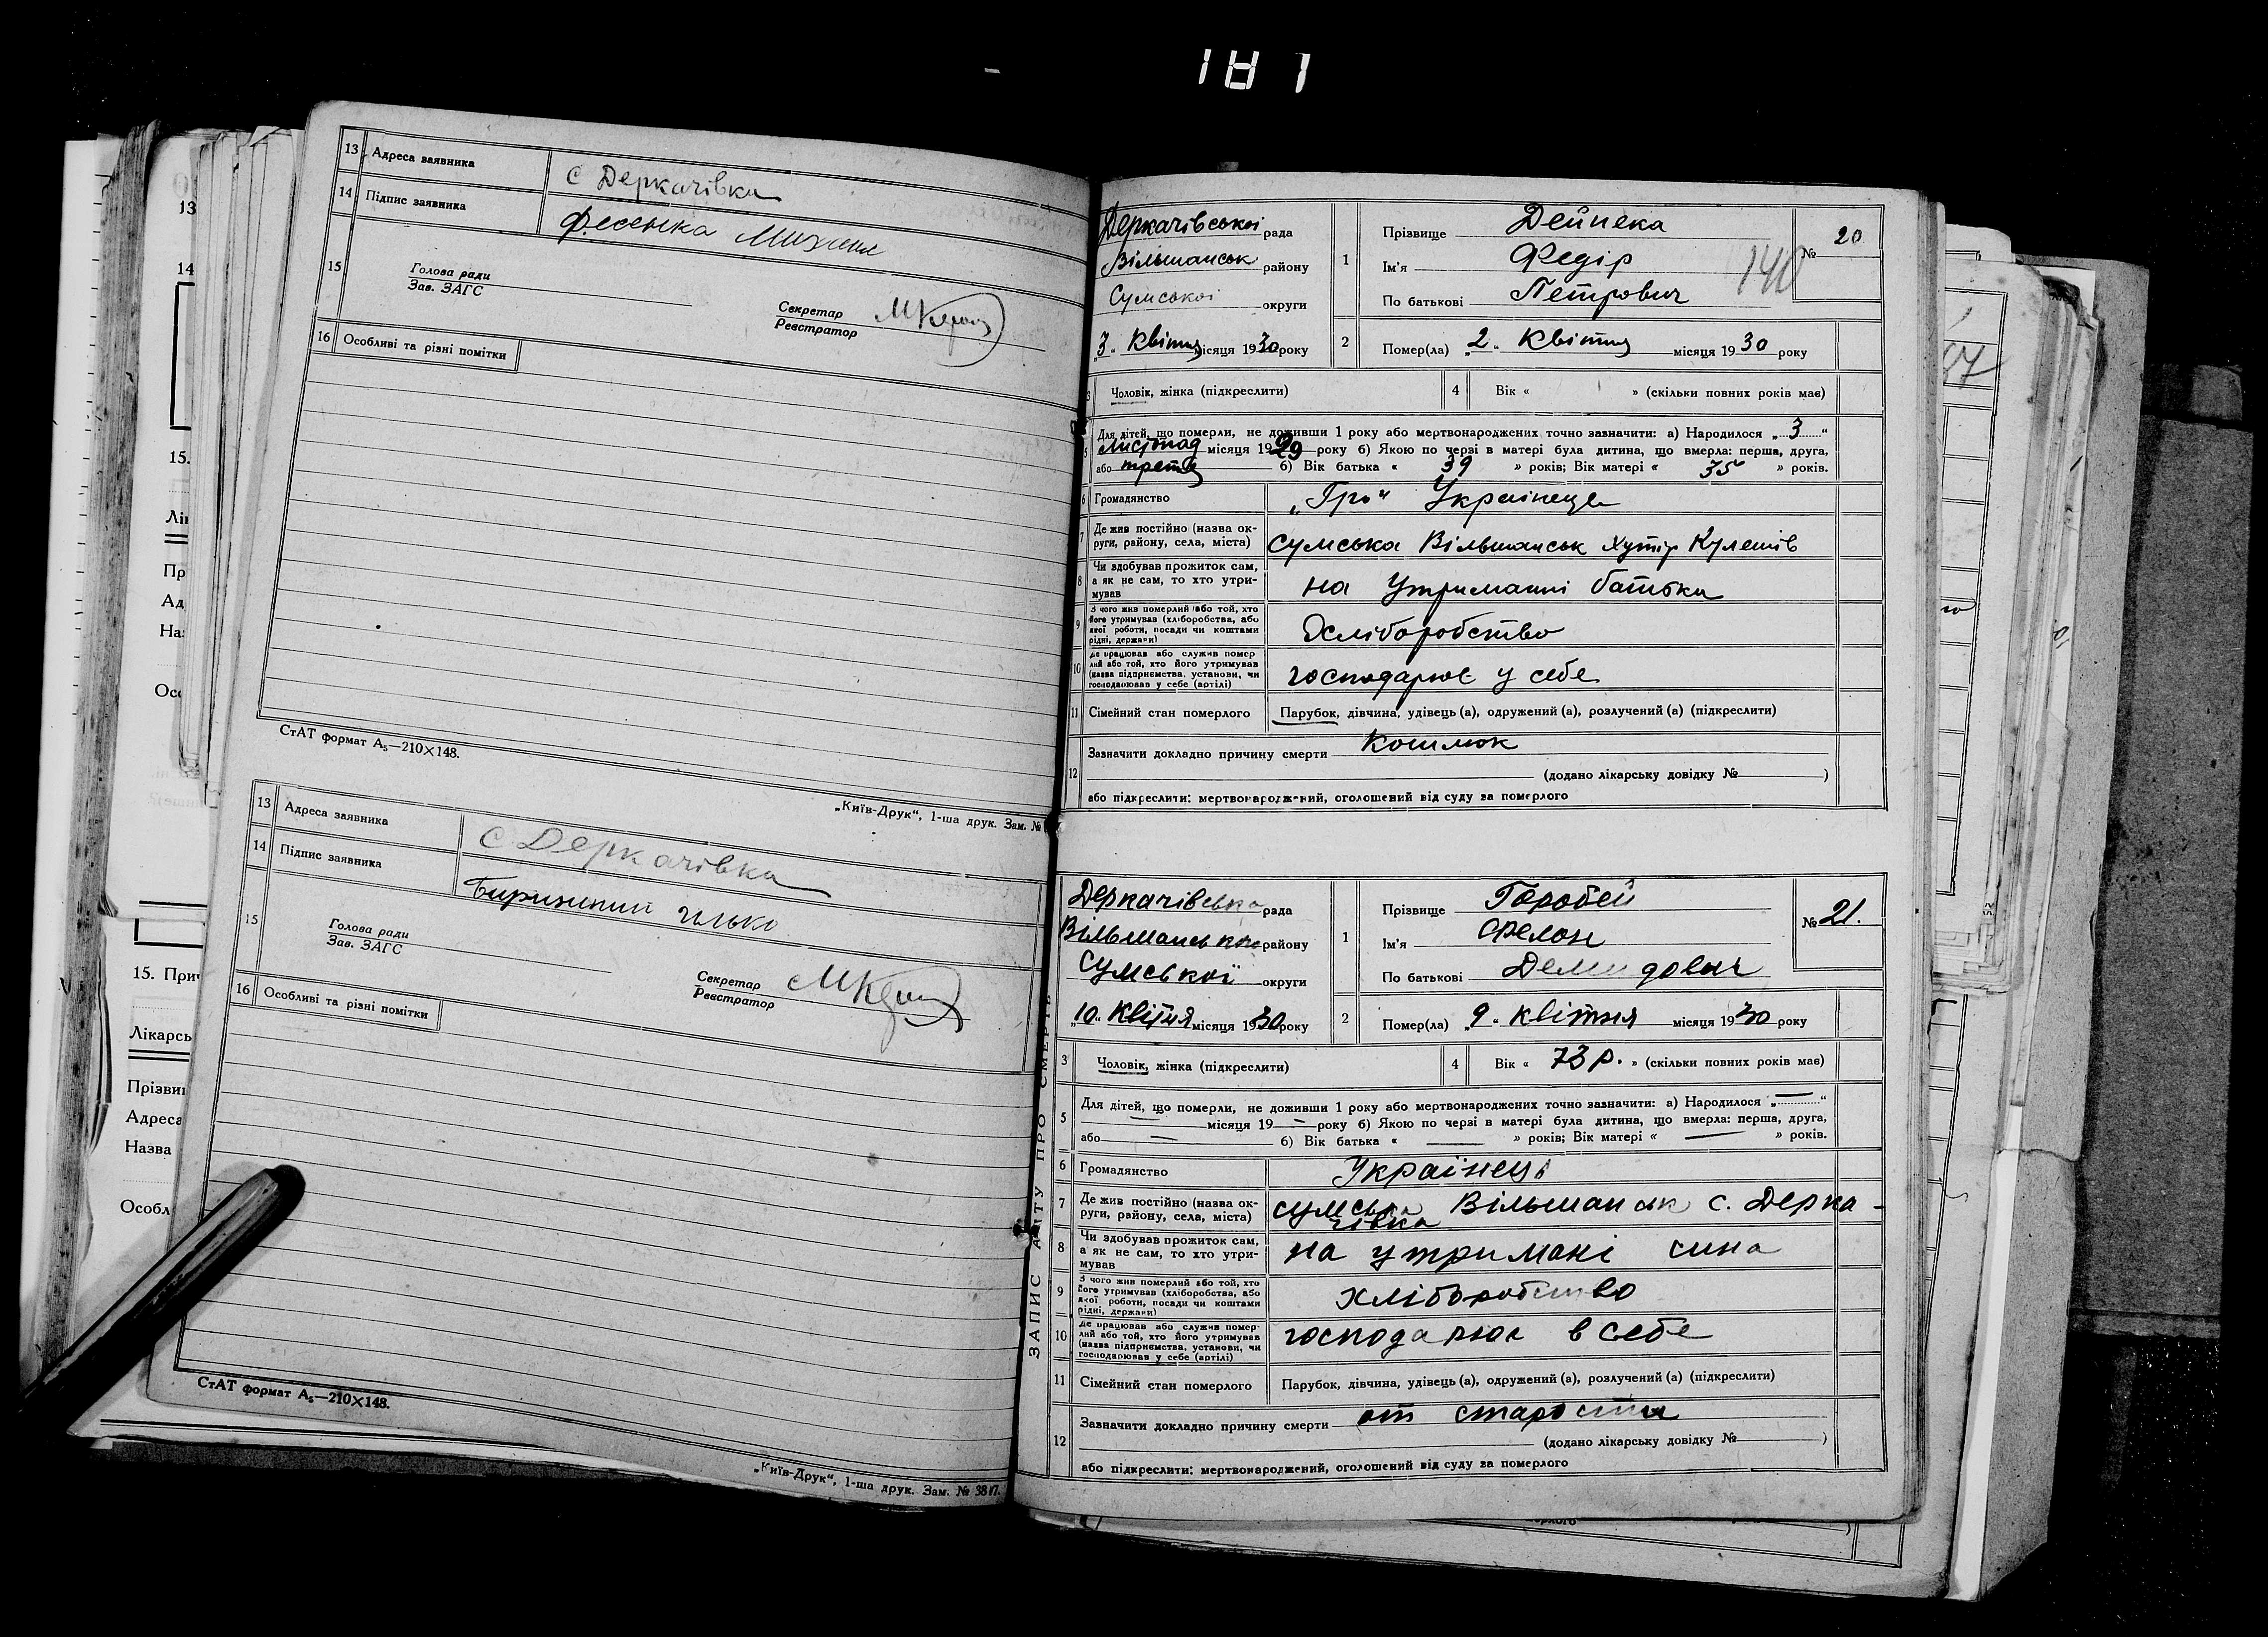 181
13 Адреса заявника с Деркачівка
14 Підпис заявника Фесенка Михаил
15 Голова ради
Зав. ЗАГС
Секретар
Реєстратор
16 Особливі та різні помітки
СтАТ формат А₅—210×148.
„Київ-Друк“, 1-ша друк. Зам. №
13 Адреса заявника с Деркачівка
14 Підпис заявника
15 Голова ради
Зав. ЗАГС
Секретар
Реєстратор
16 Особливі та різні помітки
СтАТ формат А₅—210×148.
„Київ-Друк“, 1-ша друк. Зам. № 3817.
ЗАПИС АКТУ ПРО СМЕРТЬ
Деркачівської рада
Вільшанськ району
Сумської округи
„3“ Квітня місяця 1930 року
1 Прізвище Дейнека
Ім’я Федір
По батькові Петрович
№ 20
140
2 Помер(ла) „2“ Квітня місяця 1930 року
3 Чоловік, жінка (підкреслити)
4 Вік « » (скільки повних років має)
5 Для дітей, що померли, не доживши 1 року або мертвонароджених точно зазначити: а) Народилося „3“
Листопад місяця 1929 року б) Якою по черзі в матері була дитина, що вмерла: перша, друга,
або третя б) Вік батька « 39 » років; Вік матері « 35 » років.
6 Громадянство „Гро“ Українець
7 Де жив постійно (назва ок-
руги, району, села, міста) Сумська Вільшанськ Хутір Кулешів
8 Чи здобував прожиток сам,
а як не сам, то хто утри-
мував на утриманні батька
9 З чого жив померлий або той, хто
його утримував (хліборобства, або
якої роботи, посади чи коштами
рідні, держави) Хліборобство
10 Де працював або служив помер-
лий або той, хто його утримував
(назва підприємства, установи, чи
господарював у себе (артілі) господарює у себе
11 Сімейний стан померлого Парубок, дівчина, удівець (а), одружений (а), розлучений (а) (підкреслити)
12 Зазначити докладно причину смерти Кошмок
(додано лікарську довідку № )
або підкреслити: мертвонароджений, оголошений від суду за померлого
Деркачівська рада
Вільшанська району
Сумської округи
„10“ Квітня місяця 1930 року
1 Прізвище Горобей
Ім’я Филон
По батькові Демидович
№ 21.
2 Помер(ла) „9“ Квітня місяця 1930 року
3 Чоловік, жінка (підкреслити)
4 Вік « 73 р. » (скільки повних років має)
5 Для дітей, що померли, не доживши 1 року або мертвонароджених точно зазначити: а) Народилося „—“
— місяця 19— року б) Якою по черзі в матері була дитина, що вмерла: перша, друга,
або — б) Вік батька « — » років; Вік матері « — » років.
6 Громадянство Українець
7 Де жив постійно (назва ок-
руги, району, села, міста) Сумська Вільшанськ с. Дерка-
чівка
8 Чи здобував прожиток сам,
а як не сам, то хто утри-
мував на утримані сина
9 З чого жив померлий або той, хто
його утримував (хліборобства, або
якої роботи, посади чи коштами
рідні, держави) хліборобство
10 Де працював або служив помер-
лий або той, хто його утримував
(назва підприємства, установи, чи
господарював у себе (артілі) господарює в себе
11 Сімейний стан померлого Парубок, дівчина, удівець (а), одружений (а), розлучений (а) (підкреслити)
12 Зазначити докладно причину смерти от старости
(додано лікарську довідку № )
або підкреслити: мертвонароджений, оголошений від суду за померлого